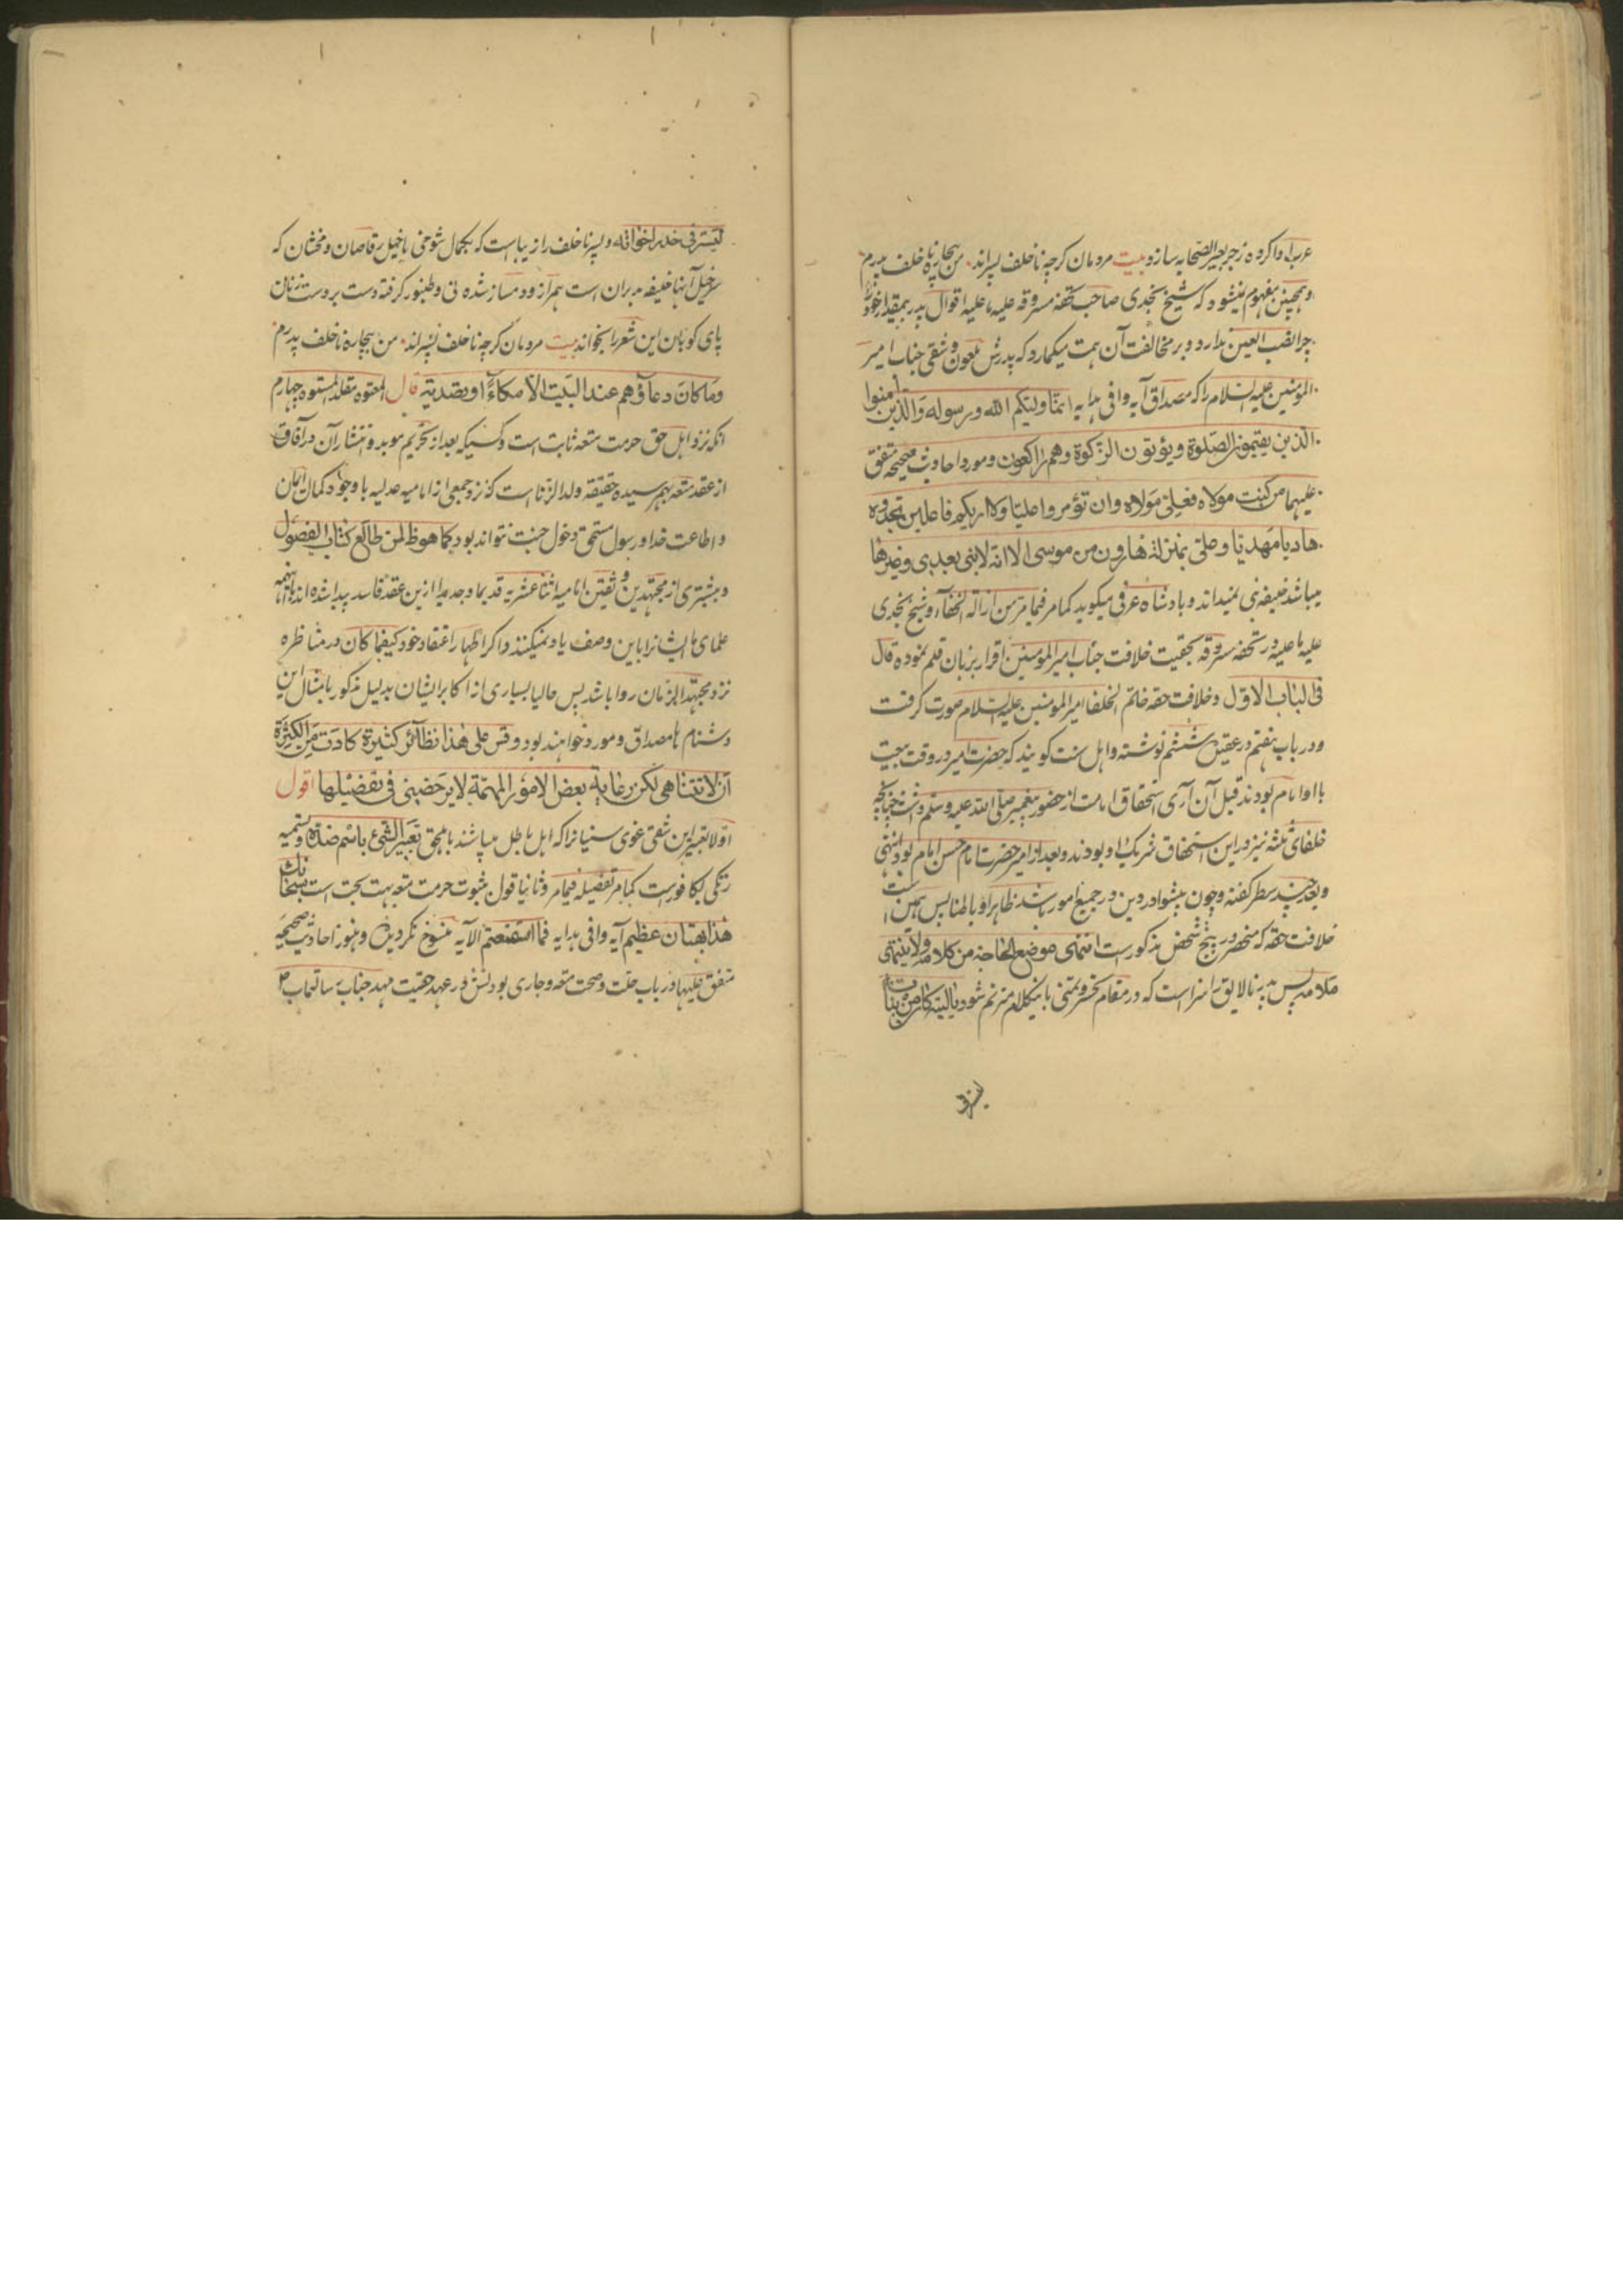 عرب ادا کرده زجر بعیر الصحابه سازد بیت مردمان گرچه ناخلف پسراند من بیچاره ناخلف پدرم
و همچنین مفهوم نمیشود که شیخ نجدی صاحب تحفه مسروقه علیه ما علیه اقوال پدر بیمقدار خود را
چرا نصب العین ندارد و بر مخالفت آن همت میگمارد که پدرش ملعون و شقی جناب امیر
المؤمنین علیه السلام را که مصداق آیه وافی هدایه انما ولیکم الله ورسوله والذین آمنوا
الذین یقیمون الصلوة ویؤتون الزکوة وهم راکعون و مورد احادیث صحیحه متفق
علیها من کنت مولاه فعلی مولاه وان تؤمروا علیا ولا اریکم فاعلین تجدوه
هادیا مهدیا وعلی بمنزلة هارون من موسی الا انه لا نبی بعدی وغیرها
میباشد خلیفه نبی نمیداند و بادشاه عرفی میگوید کما مر فیما مر من ازالة الخفآء و شیخ نجدی
علیه ما علیه در تحفه مسروقه بحقیت خلافت جناب امیر المؤمنین اقرار بزبان قلم نموده قال
فی الباب الاول و خلافت حقه خاتم الخلفا امیر المؤمنین علیه السلام صورت گرفت
و در باب هفتم در عقیده ششم نوشته و اهل سنت گویند که حضرت امیر در وقت بیعت
با او امام بودند قبل آن آری استحقاق امامت از حضور پیغمبر صلی الله علیه وسلم داشت چنانچه
خلفای ثلثه نیز در این استحقاق شریک او بودند و بعد از امیر حضرت امام حسن امام بود انتهی
و بعد چند سطر گفته و چون پیشوا در دین در جمیع امور باشد ظاهرا و باطنا پس همین است
خلافت حقه که منحصر در پنج شخص مذکور است انتهی موضع الحاجة من کلامه ولا ینتهی
ملامه پس پدر نالایق را سزا است که در مقام تحسر و تمنی باینکلام مترنم شود یا لیته کان من بنات
لیتزفی
لیتزفی خدر اخواته و پسر ناخلف را زیبا است که بکمال شوخی با خیل رقاصان و مخنثان که
سرخیل آنها خلیفه پدران است همراز و دمساز شده نی و طنبور گرفته دست بر دست زنان
پای کوبان این شعر را بخواند بیت مردمان گرچه ناخلف پسراند من بیچاره ناخلف پدرم
وما کان دعآؤهم عند البیت الا مکآءً او تصدیة قال المعتوه مقلد المستوه چهارم
آنکه نزد اهل حق حرمت متعه ثابت است و کسیکه بعد از تحریم موبد و انتشار آن در آفاق
از عقد متعه بهم رسیده حقیقة ولد الزنا است که نزد جمعی از امامیه عدلیه با وجود کمال ایمان
و اطاعت خدا و رسول مستحق دخول جنت نتواند بود کما هو ظ لمن طالع کتاب الفصول
و بیشتری از مجتهدین و ثقتین امامیه اثنا عشریه قدیما و جدیدا ازین عقد فاسد پیدا شده اند با اینهمه
علمای ما ایشانرا باین وصف یاد نمیکنند و اگر اظهار اعتقاد خود کیفما کان در مناظره
نزد مجتهد الزمان روا باشد پس حالیا بسیاری از اکابر ایشان بدلیل مذکور بامثال این
دشنام ها مصداق و مورد خواهند بود وقس علی هذا نظائر کثیرة کادت من الکثرة
ان لا تتناهی لکن رعایة بعض الامور المهمة لا یرخصنی فی تفضیلها اقول
اولا تعبیر این شقی غوی سنیانرا که اهل باطل میباشند باهلحق تعبیر الشیء باسم ضده و تسمیه
زنگی بکافور است کما مر تفضیله فیما مر و ثانیا قول بثبوت حرمت متعه بهت بحت است سبحانک
هذا بهتان عظیم آیه وافی هدایه فما استمتعتم الآیه منسوخ نگردیده و هنوز احادیث صحیحه
متفق علیها در باب حلت و صحت متعه و جاری بودنش در عهد حقیت مهد جناب رسالتماب ص